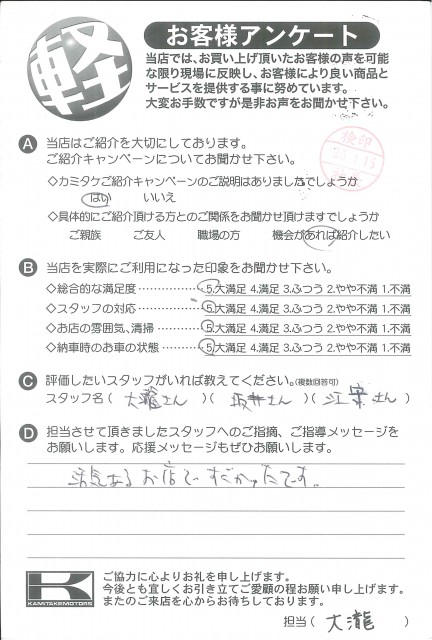 軽
お客様アンケート
当店では、お買い上げ頂いたお客様の声を可能
な限り現場に反映し、お客様により良い商品と
サービスを提供する事に努めています。
大変お手数ですが是非お声をお聞かせ下さい。
A 当店はご紹介を大切にしております。
ご紹介キャンペーンについてお聞かせ下さい。
検印
◇カミタケご紹介キャンペーンのご説明はありましたでしょうか
はい いいえ
◇具体的にご紹介頂ける方とのご関係をお聞かせ頂けますでしょうか
ご親族 ご友人 職場の方 機会があれば紹介したい
B 当店を実際にご利用になった印象をお聞かせ下さい。
◇総合的な満足度 5.大満足 4.満足 3.ふつう 2.やや不満 1.不満
◇スタッフの対応 5.大満足 4.満足 3.ふつう 2.やや不満 1.不満
◇お店の雰囲気、清掃 5.大満足 4.満足 3.ふつう 2.やや不満 1.不満
◇納車時のお車の状態 5.大満足 4.満足 3.ふつう 2.やや不満 1.不満
C 評価したいスタッフがいれば教えてください。(複数回答可)
スタッフ名 ( 大瀧さん )( 坂井さん )( 江 さん )
D 担当させて頂きましたスタッフへのご指摘、ご指導メッセージを
お願いします。応援メッセージもぜひお願いします。
活気あるお店で よかったです。
K
KAMITAKE MOTORS
ご協力に心よりお礼を申し上げます。
今後とも宜しくお引き立てご愛顧の程お願い申し上げます。
またのご来店を心からお待ちしております。
担当 ( 大瀧 )